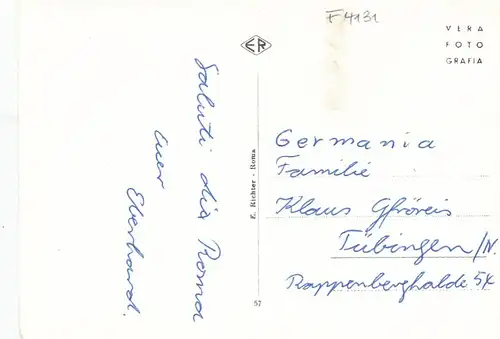 F4131
VERA
FOTO
GRAFIA
ER
Saluti dia Roma
Euer
Eberhard.
E. Richter - Roma
57
Germania
Familie
Klaus Gfröreis
Tübingen/N.
Rappenberghalde 54